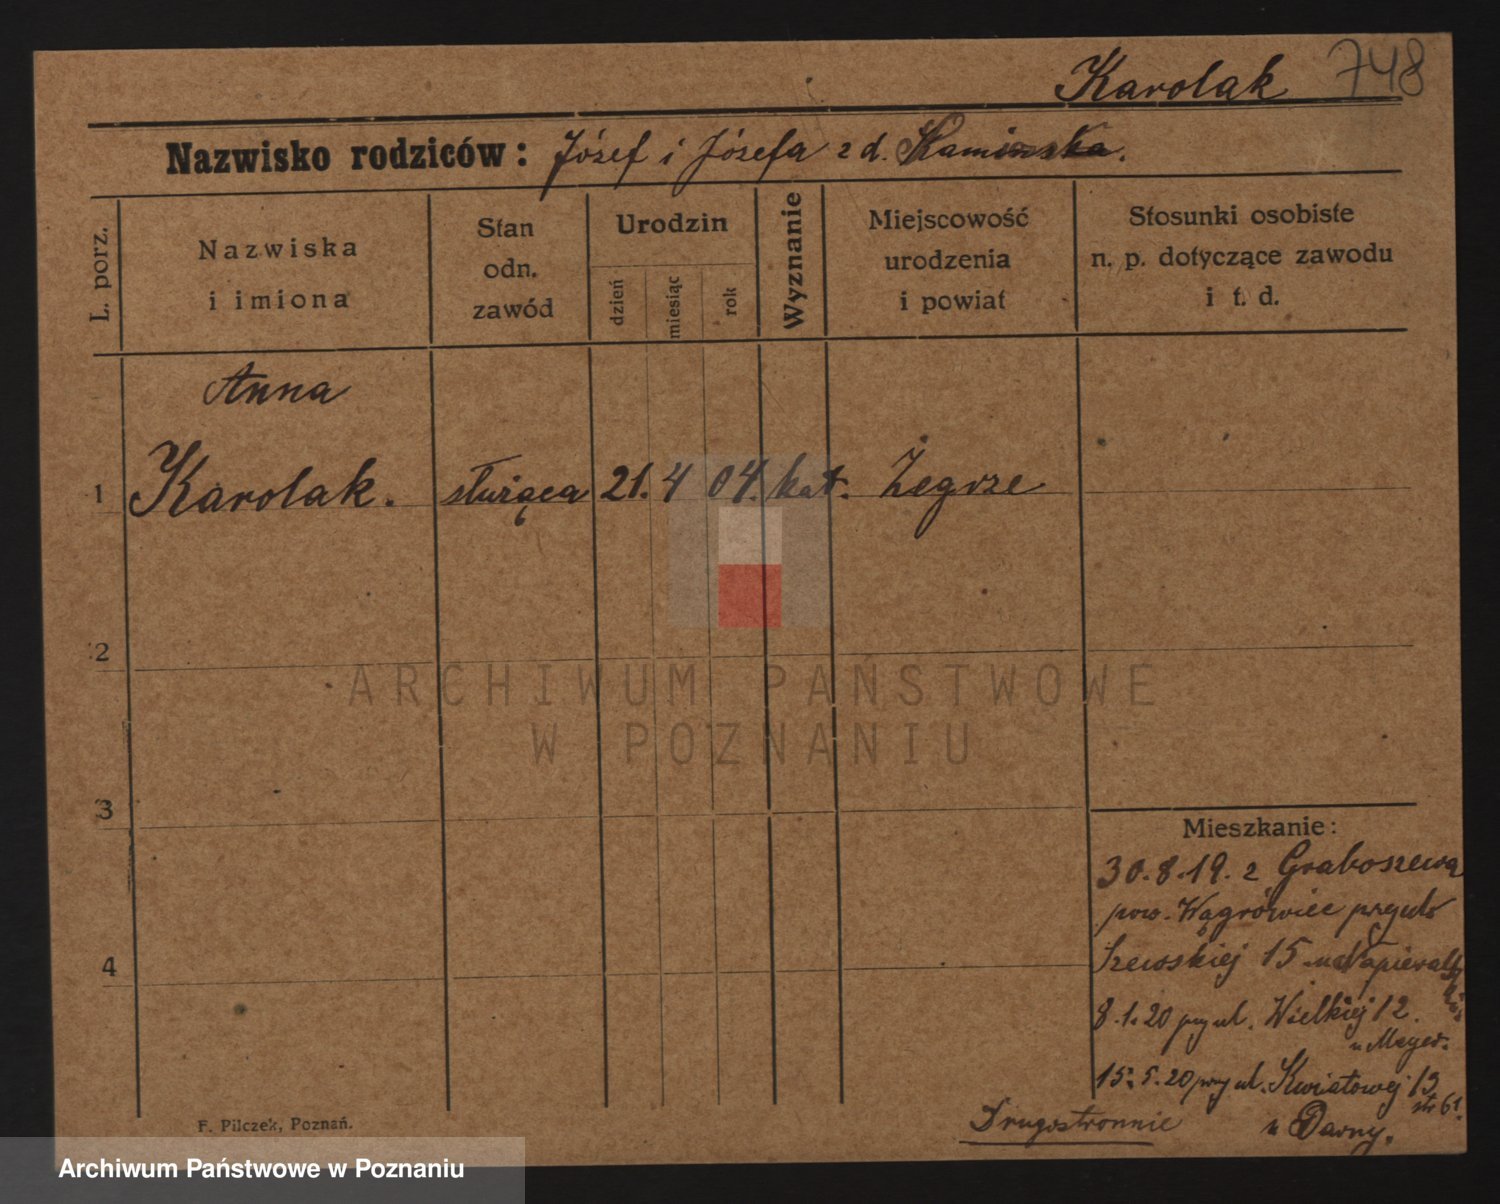 Karolak 748
Nazwisko rodziców: Józef i Józefa z d. Kaminska.
L. porz.
Nazwiska
i imiona
Stan
odn.
zawód
Urodzin
dzień
miesiąc
rok
Wyznanie
Miejscowość
urodzenia
i powiat
Stosunki osobiste
n. p. dotyczące zawodu
i t. d.
Anna
1 Karolak. służąca 21. 4 04. kat. Żegrze
2
ARCHIWUM PAŃSTWOWE
W POZNANIU
3
Mieszkanie:
30.8.19. z Graboszewa
pow. Wągrówiec przy ul.
Szewskiej 15
4
8.1.20 przy ul. Wielkiej 12.
u Meyer.
15.5.20 przy ul. Kwiatowej 13
str 61.
u Darny.
Drugostronnie
F. Pilczek, Poznań.
Archiwum Państwowe w Poznaniu